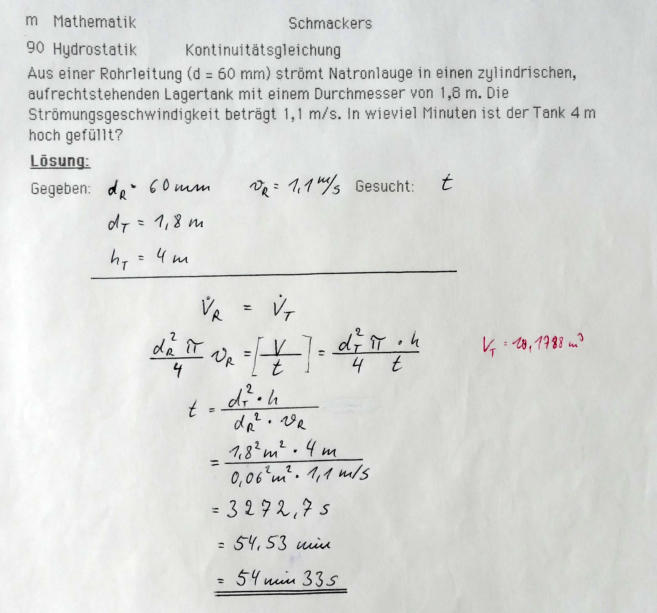 m Mathematik Schmackers
90 Hydrostatik Kontinuitätsgleichung
Aus einer Rohrleitung (d = 60 mm) strömt Natronlauge in einen zylindrischen,
aufrechtstehenden Lagertank mit einem Durchmesser von 1,8 m. Die
Strömungsgeschwindigkeit beträgt 1,1 m/s. In wieviel Minuten ist der Tank 4 m
hoch gefüllt?
Lösung:
Gegeben: d_R = 60 mm v_R = 1,1 m/s Gesucht: t
d_T = 1,8 m
h_T = 4 m
V̇_R = V̇_T
d_R² π / 4 v_R = [V / t] = d_T² π · h / 4 t
V_T = 10,1788 m³
t = d_T² · h / d_R² · v_R
= 1,8² m² · 4 m / 0,06² m² · 1,1 m/s
= 3272,7 s
= 54,53 min
= 54 min 33 s